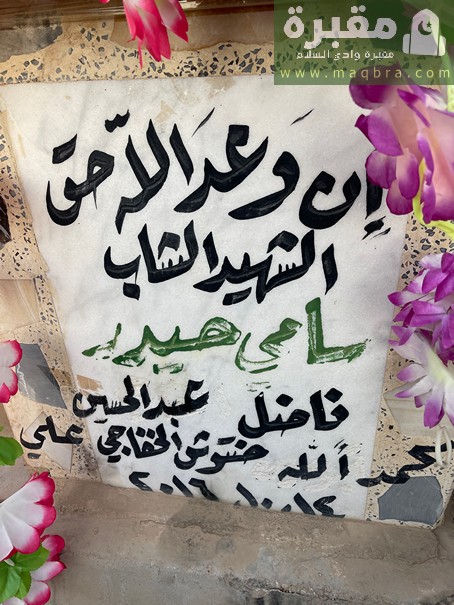 مقبرة
مقبرة وادي السلام
www.maqbra.com
إن وعد الله حق
الشهيد الشاب
سامي صيدر
فاضل عبدالحسين
حنتوش الخفاجي علي
رحمه الله
٢٠١٦